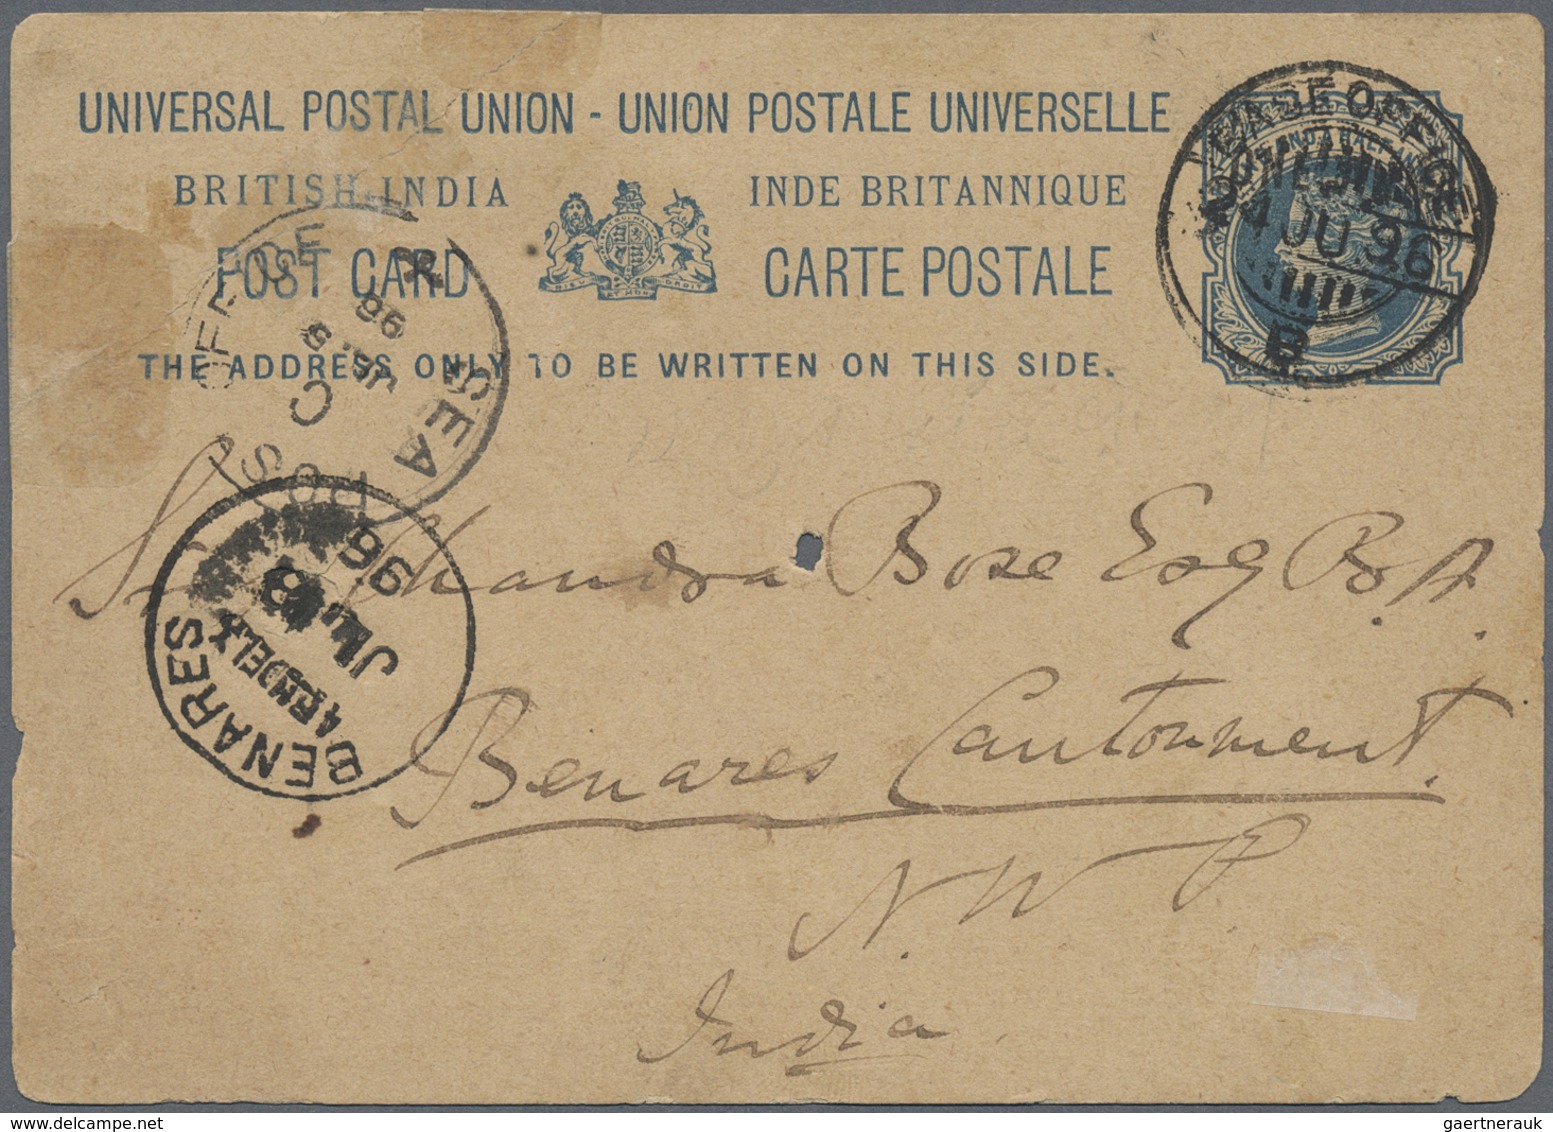 UNIVERSAL POSTAL UNION - UNION POSTALE UNIVERSELLE
BRITISH INDIA INDE BRITANNIQUE
POST CARD CARTE POSTALE
THE ADDRESS ONLY TO BE WRITTEN ON THIS SIDE.
BASE OFFICE
24 JU 96
B
SEA POST OFFICE
C
96
BENARES
JL
96
Chandra Bose Esq B.A.
Benares Cantonment.
N.W.P.
India
gaertnerauk @ delcampe.net